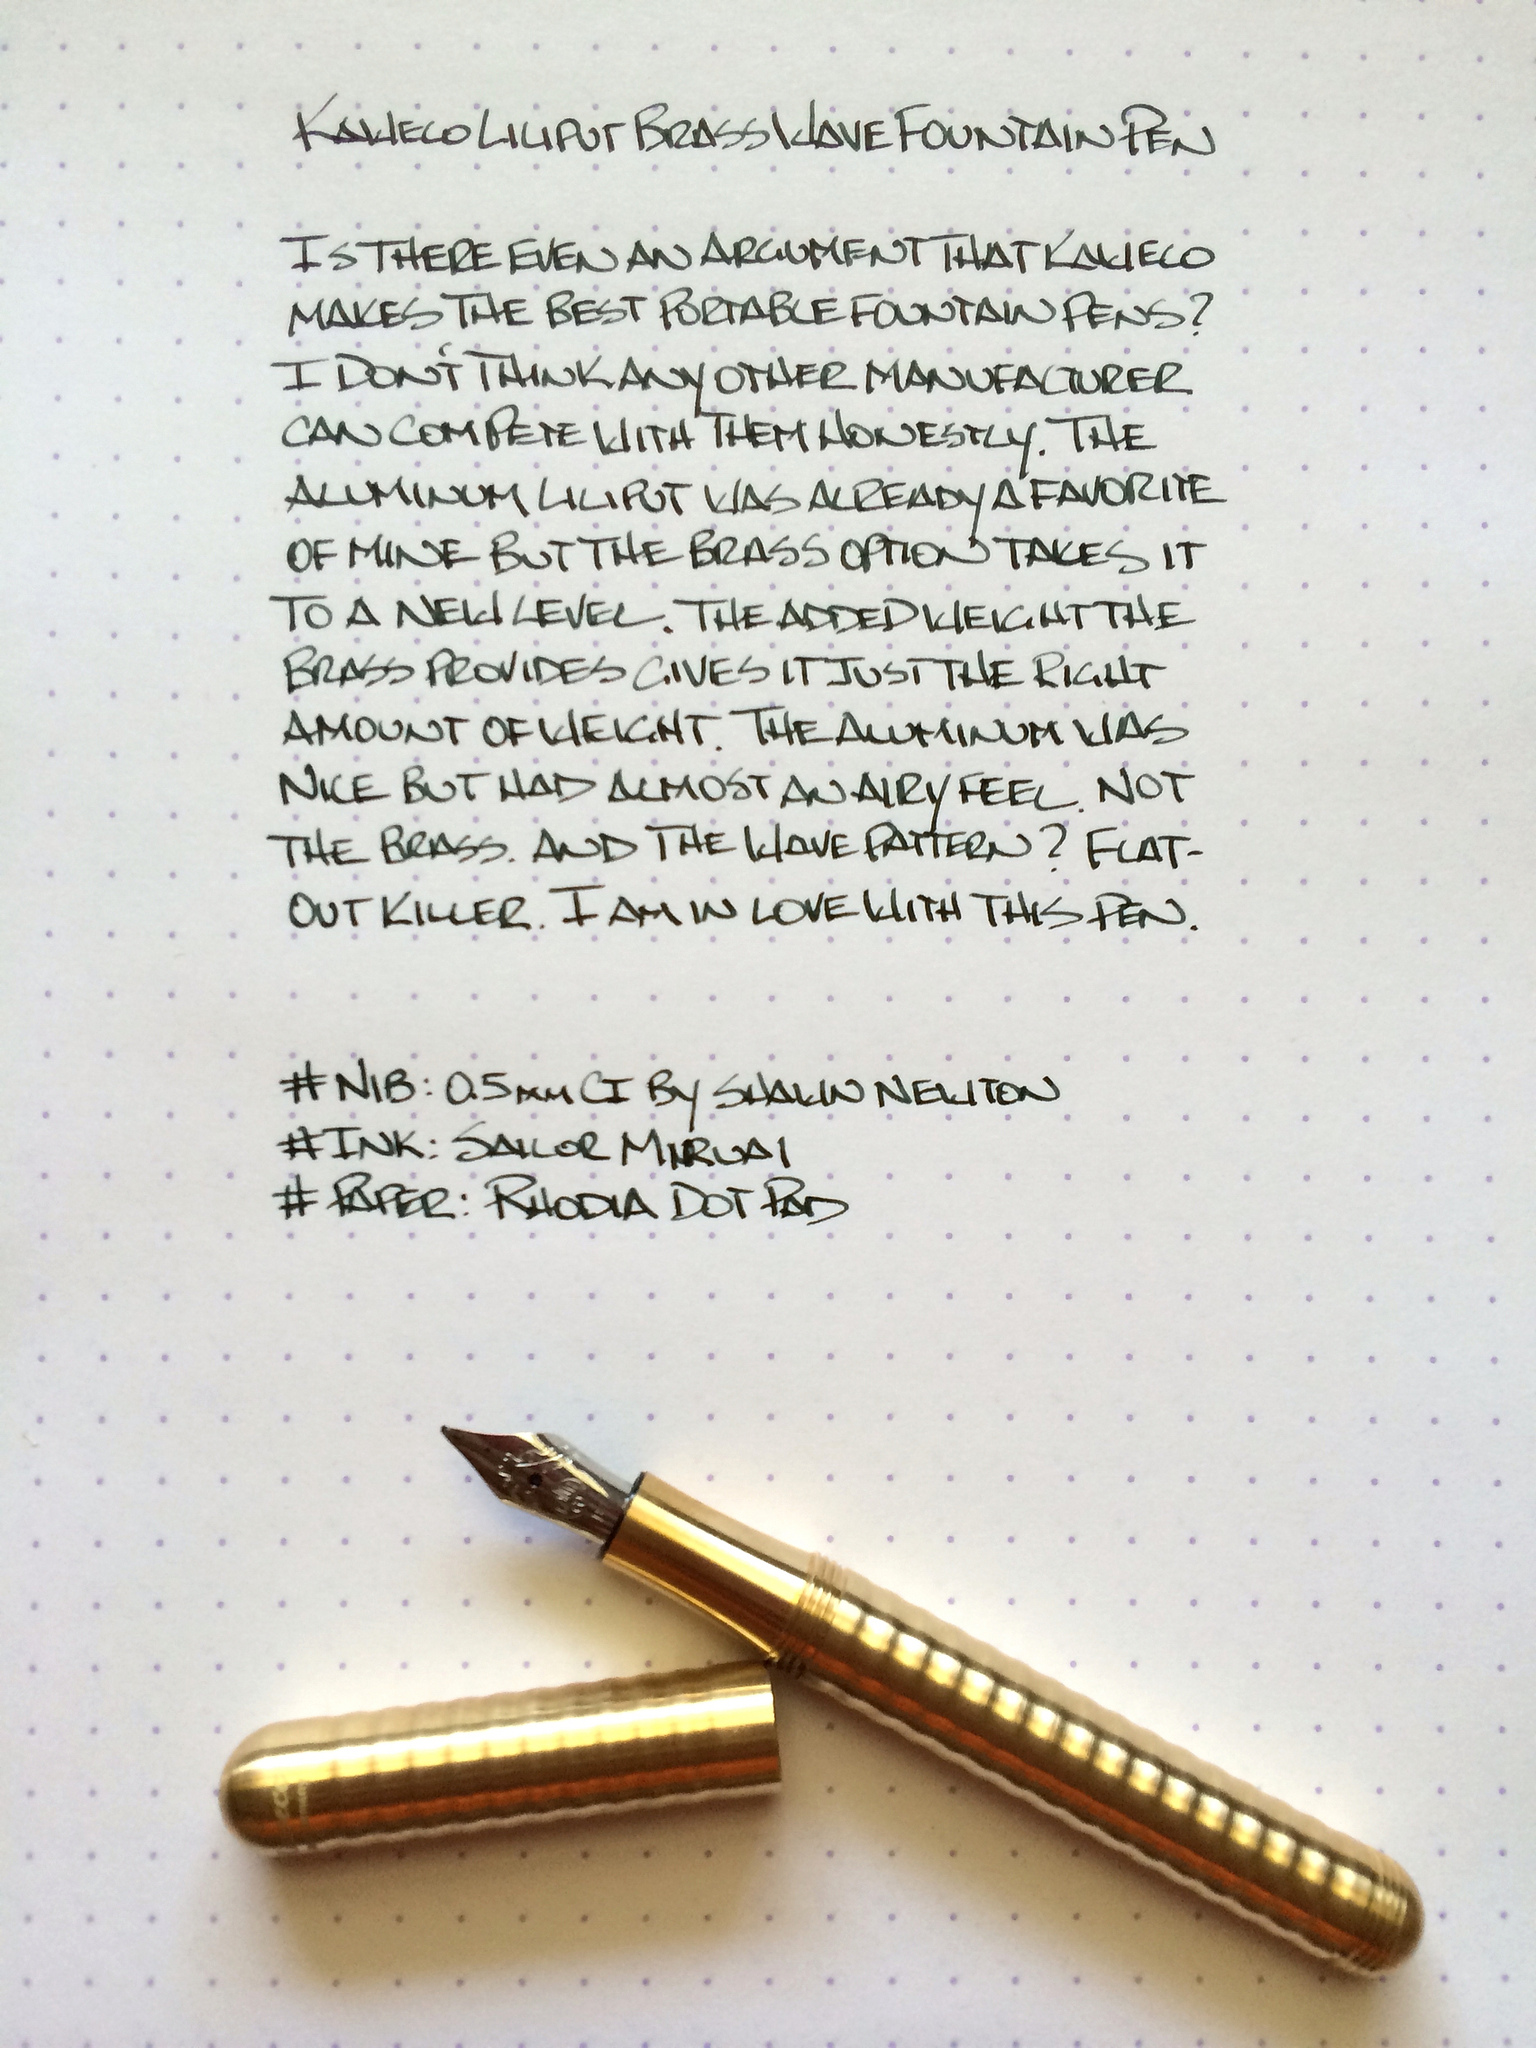 KAWECO LILIPUT BRASS WAVE FOUNTAIN PEN
IS THERE EVEN AN ARGUMENT THAT KAWECO
MAKES THE BEST PORTABLE FOUNTAIN PENS?
I DON'T THINK ANY OTHER MANUFACTURER
CAN COMPETE WITH THEM HONESTLY. THE
ALUMINUM LILIPUT WAS ALREADY A FAVORITE
OF MINE BUT THE BRASS OPTION TAKES IT
TO A NEW LEVEL. THE ADDED WEIGHT THE
BRASS PROVIDES GIVES IT JUST THE RIGHT
AMOUNT OF WEIGHT. THE ALUMINUM WAS
NICE BUT HAD ALMOST AN AIRY FEEL. NOT
THE BRASS. AND THE WAVE PATTERN? FLAT-
OUT KILLER. I AM IN LOVE WITH THIS PEN.
# NIB: 0.5mm CI BY SHAWN NEWTON
# INK: SAILOR MIRUAI
# PAPER: RHODIA DOT PAD